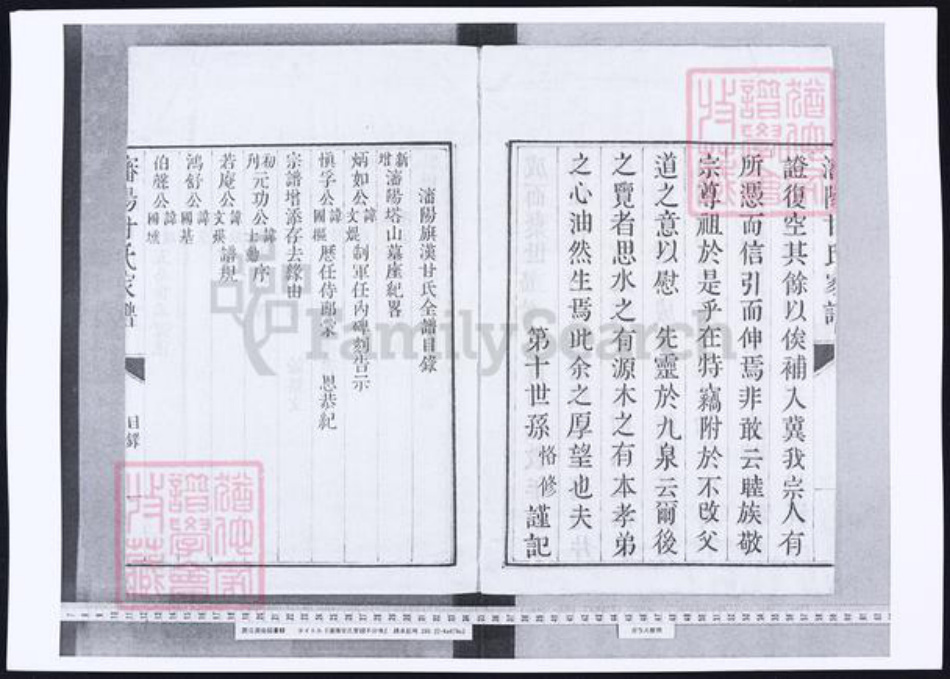 瀋陽甘氏家譜
證復空其餘以俟補入冀我宗人有
所憑而信引而伸焉非敢云睦族敬
宗尊祖於是乎在特竊附於不改父
道之意以慰 先靈於九泉云爾後
之覽者思水之有源木之有本孝弟
之心油然生焉此余之厚望也夫
第十世孫 恪修 謹記
瀋陽旗漢甘氏全譜目錄
新增瀋陽塔山墓座紀畧
炳如公諱文焜制軍任內碑刻告示
慎孚公諱國樞歷任侍郎 恩恭紀
宗譜增添存去緣由
初刋元功公諱士 序
若庵公諱文 譜規
鴻舒公諱國基
伯聲公諱國
瀋陽甘氏家譜
目錄
FamilySearch